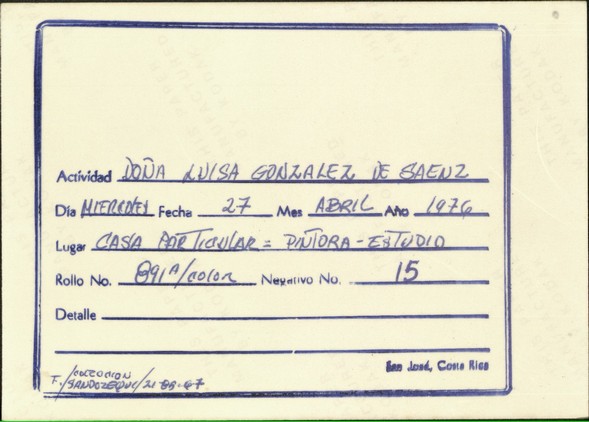 Actividad DOÑA LUISA GONZALEZ DE SAENZ
Día MIERCOLES Fecha 27 Mes ABRIL Año 1976
Lugar CASA PARTICULAR = PINTORA - ESTUDIO
Rollo No. 891A/COLOR Negativo No. 15
Detalle
San José, Costa Rica